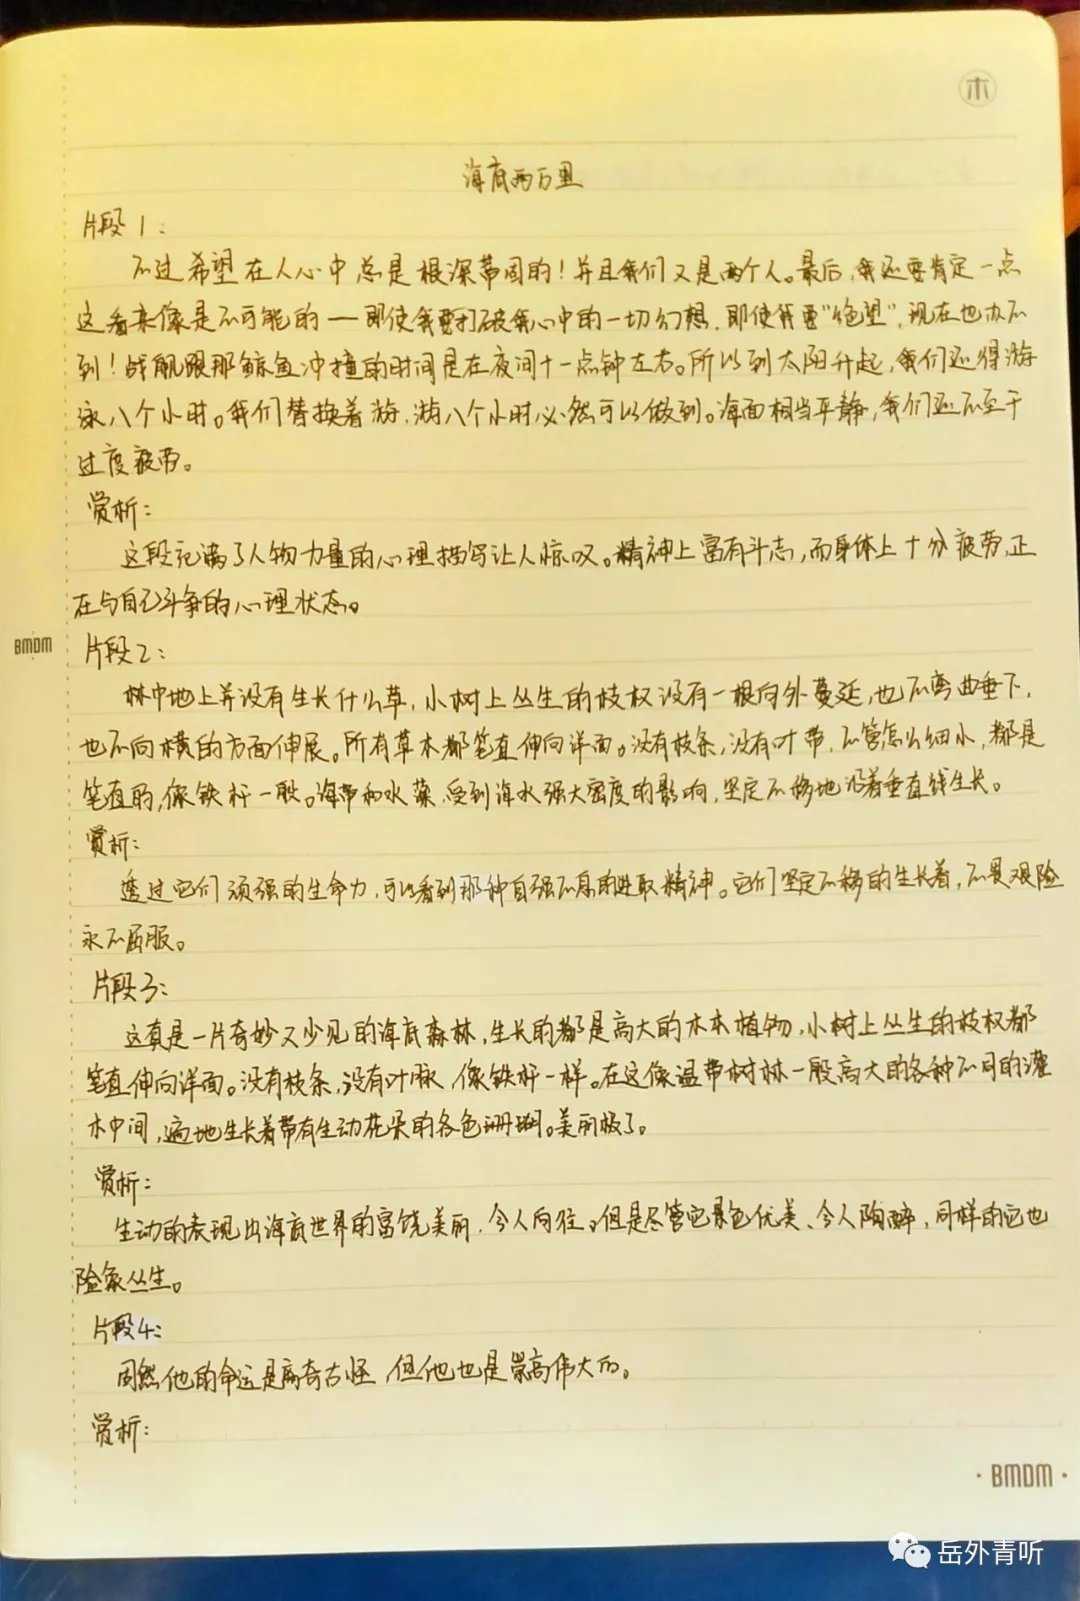 木
海底两万里
片段1:
不过希望在人心中总是根深蒂固的！并且我们又是两个人。最后，我还要肯定一点
这看来像是不可能的一即使我要打破我心中的一切幻想，即使我要"绝望"，现在也办不
到！战舰跟那鲸鱼冲撞的时间是在夜间十一点钟左右。所以到太阳升起，我们还得游
泳八个小时。我们替换着游，游八个小时必然可以做到。海面相当平静，我们还不至于
过度疲劳。
赏析：
这段充满了人物力量的心理描写让人惊叹。精神上富有斗志，而身体上十分疲劳，正
在与自己斗争的心理状态。
BMDM
片段2:
林中地上并没有生长什么草，小树上丛生的枝杈没有一根向外蔓延，也不弯曲垂下，
也不向横的方面伸展。所有草木都笔直伸向洋面。没有枝条，没有叶带，不管怎么细小，都是
笔直的，像铁杆一般。海带和水藻，受到海水强大密度的影响，坚定不移地沿着垂直线生长。
赏析：
透过它们顽强的生命力，可以看到那种自强不息的进取精神。它们坚定不移的生长着，不畏艰险
永不屈服。
片段3:
这真是一片奇妙又少见的海底森林，生长的都是高大的木本植物，小树上丛生的枝杈都
笔直伸向洋面。没有枝条，没有叶脉，像铁杆一样。在这像温带树林一般高大的各种不同的灌
木中间，遍地生长着带有生动花朵的各色珊瑚。美丽极了。
赏析：
生动的表现出海底世界的富饶美丽，令人向往。但是尽管它景色优美、令人陶醉，同样的它也
险象丛生。
片段4:
固然他的命运是离奇古怪，但他也是崇高伟大的。
赏析：
· BMDM ·
岳外青听